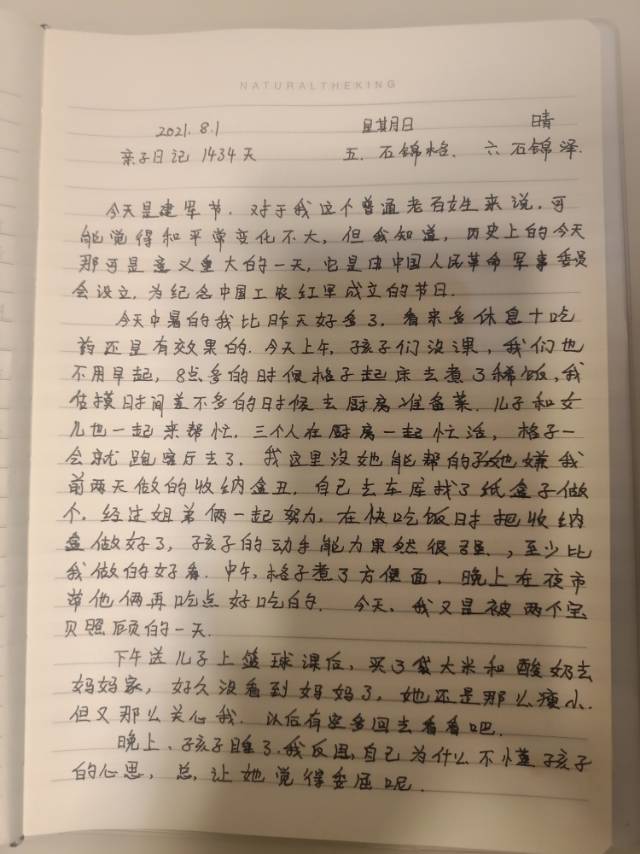 NATURALTHEKING
2021.8.1 星期日 晴
亲子日记 1434天 五.石锦怡. 六石锦泽.
今天是建军节.对于我这个普通老百姓来说,可
能觉得和平常变化不大,但我知道,历史上的今天
那可是意义重大的一天,它是由中国人民革命军事委员
会设立,为纪念中国工农红军成立的节日.
今天中暑的我比昨天好多了.看来多休息十吃
药还是有效果的.今天上午,孩子们没课,我们也
不用早起,8点多的时候格子起床去煮了稀饭,我
估摸时间差不多的时候去厨房准备菜.儿子和女
儿也一起来帮忙.三个人在厨房一起忙活,格子一
会就跑客厅去了.我这里没她能帮的,她嫌我
前两天做的收纳盒丑.自己去车库找了纸盒子做
个.经过姐弟俩一起努力,在快吃饭时把收纳
盒做好了,孩子的动手能力果然很强.,至少比
我做的好看.中午,格子煮了方便面,晚上在夜市
带他俩再吃点好吃的.今天,我又是被两个宝
贝照顾的一天.
下午送儿子上篮球课后,买了袋大米和酸奶去
妈妈家,好久没看到妈妈了,她还是那么瘦小.
但又那么关心我.以后有空多回去看看吧.
晚上,孩子睡了.我反思,自己为什么不懂孩子
的心思,总,让她觉得委屈呢.